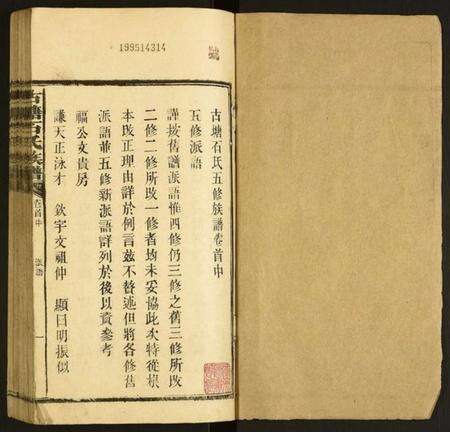 199514314
古塘石氏五修族譜卷首中
五修派語
謹按舊譜派語惟四修仍三修之舊三修所改
二修二修所改一修者均未妥協此次特從根
本改正理由詳於例言兹不贅述但將各修舊
派語並五修新派語詳列於後以資參考
福公文貴房
謙天正泳才 欽宇文祖仲 顯日明振似
古塘石氏族譜
卷首中
派語
一